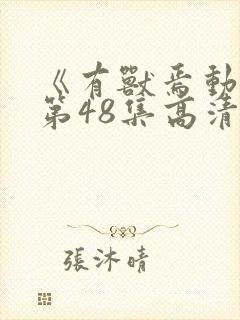 《有獸焉動
第48集高清
張沐晴